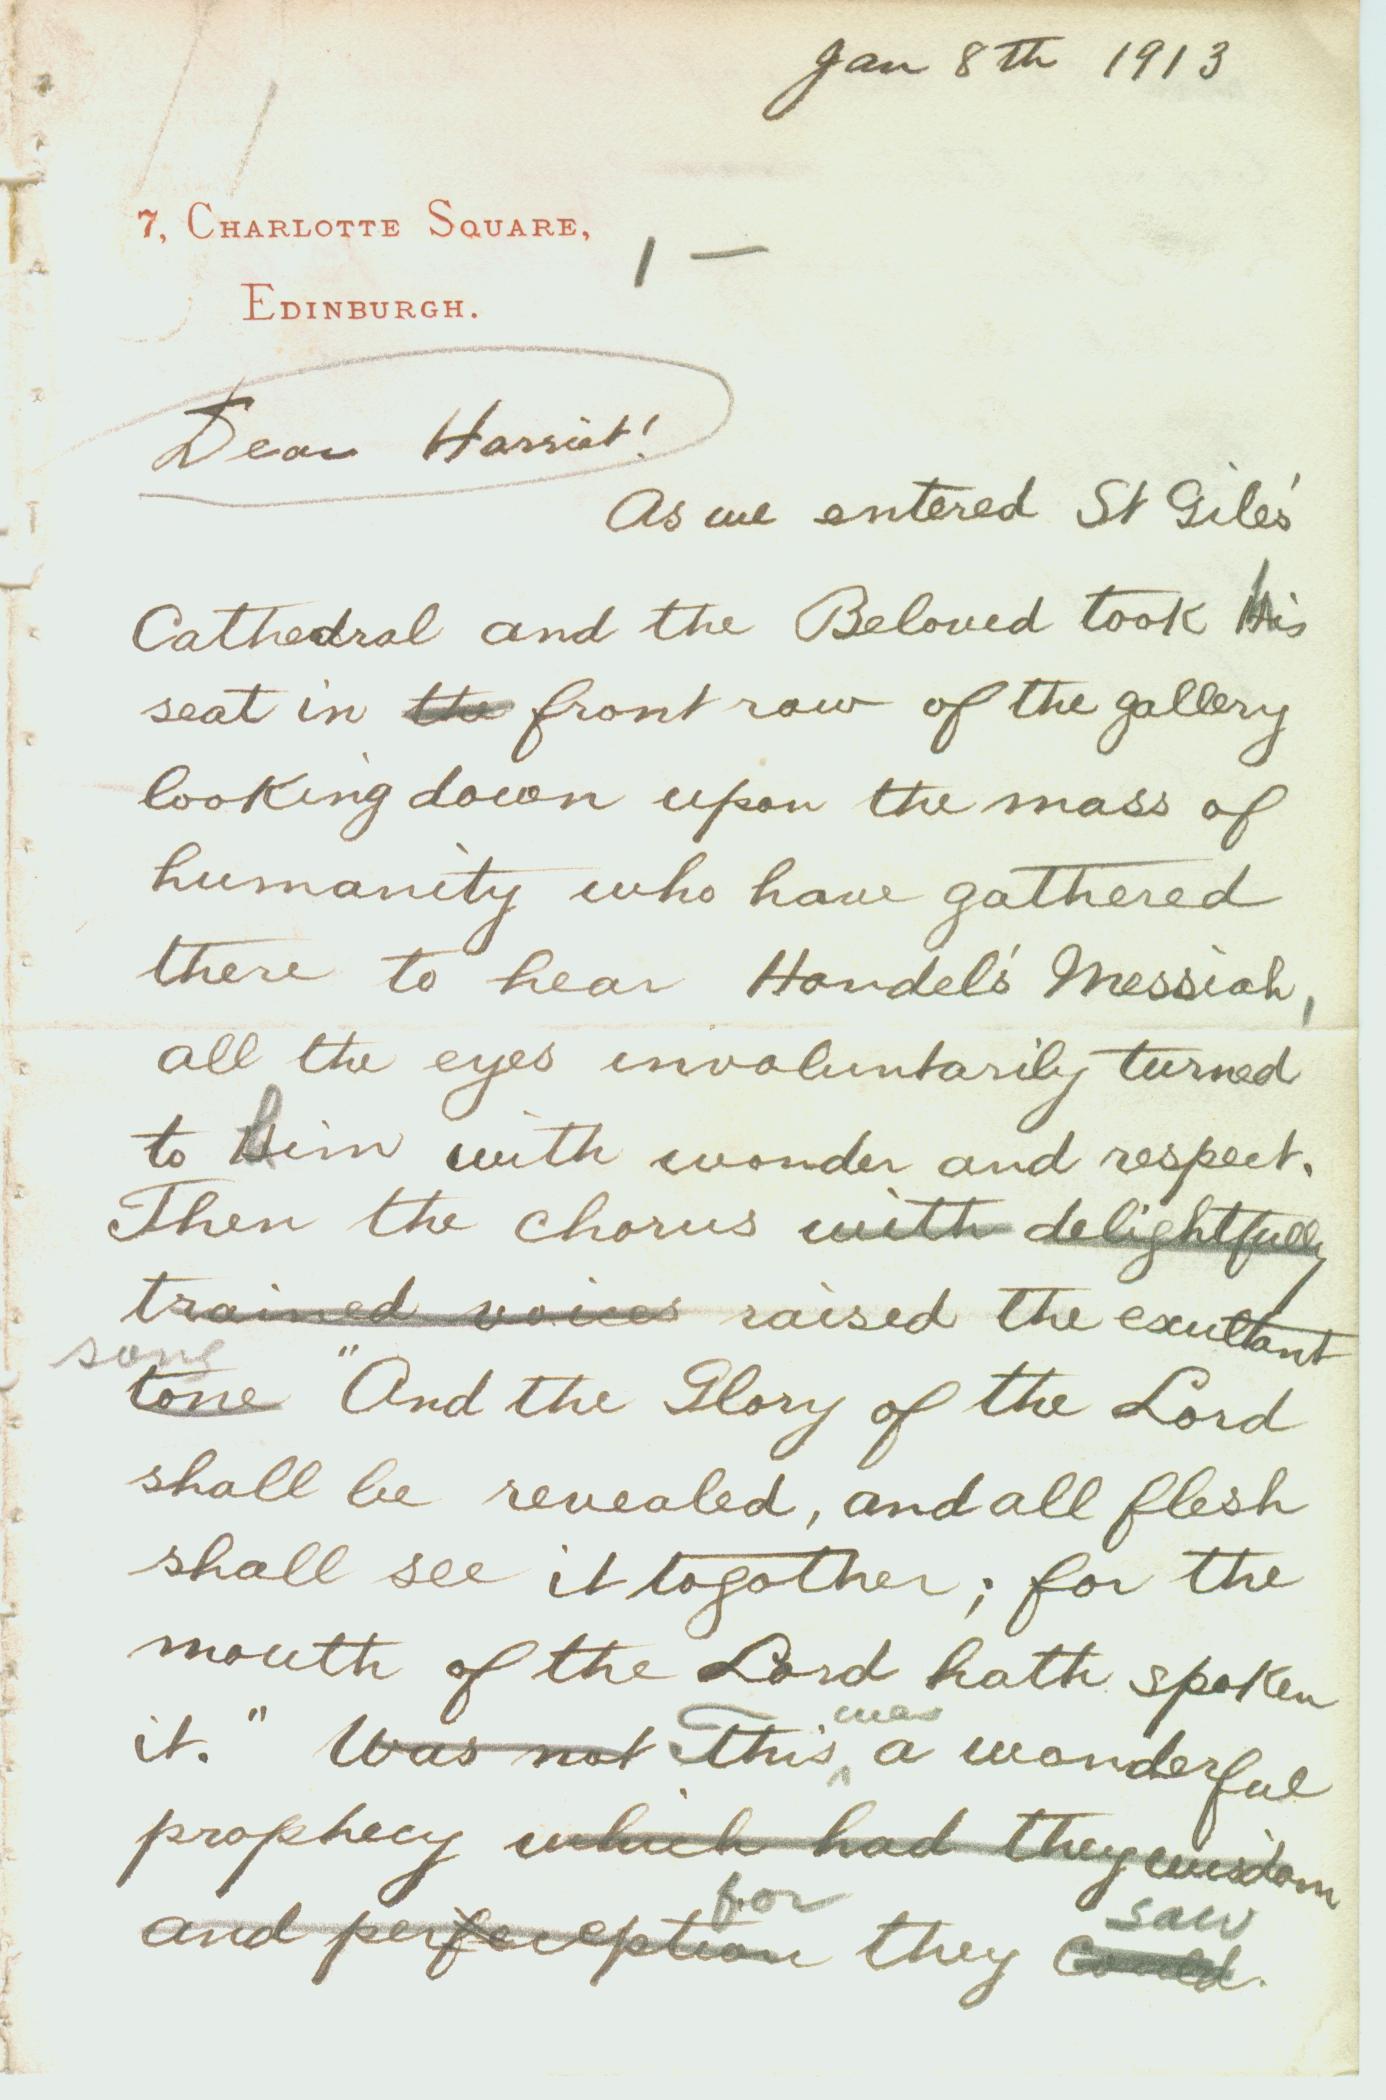 Jan 8th 1913
7, Charlotte Square,
1 —
Edinburgh.
Dear Harriet!
As we entered St Gile's
Cathedral and the Beloved took His
seat in the front row of the gallery
looking down upon the mass of
humanity who have gathered
there to hear Handel's Messiah,
all the eyes involuntarily turned
to him with wonder and respect.
Then the chorus with delightfully
trained voices raised the exultant
song
tone "And the Glory of the Lord
shall be revealed, and all flesh
shall see it together; for the
mouth of the Lord hath spoken
it." Was not This was a wonderful
prophecy which had they wisdom
and perfeception for they could saw